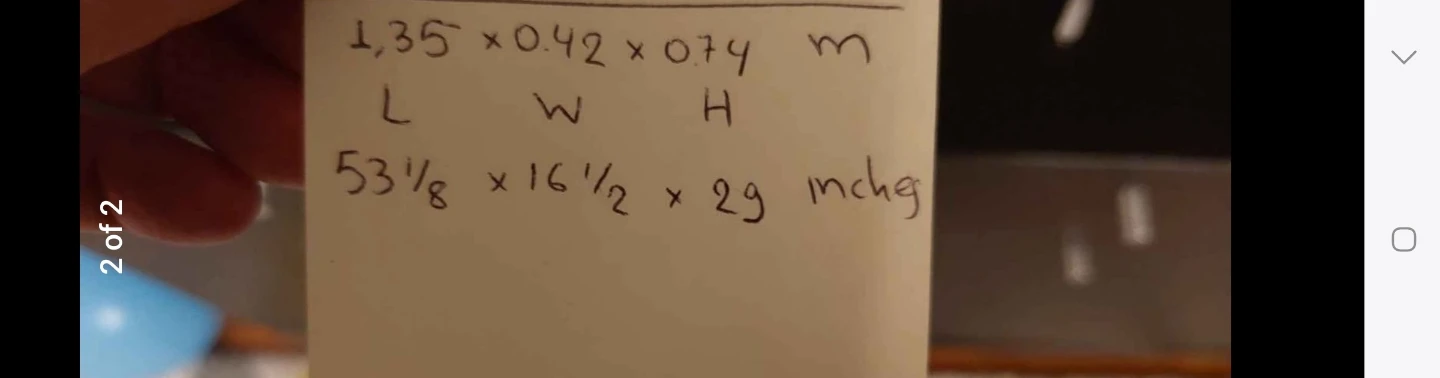 1,35 × 0.42 × 0.74 m
L W H
53 1/8 × 16 1/2 × 29 inches
2 of 2